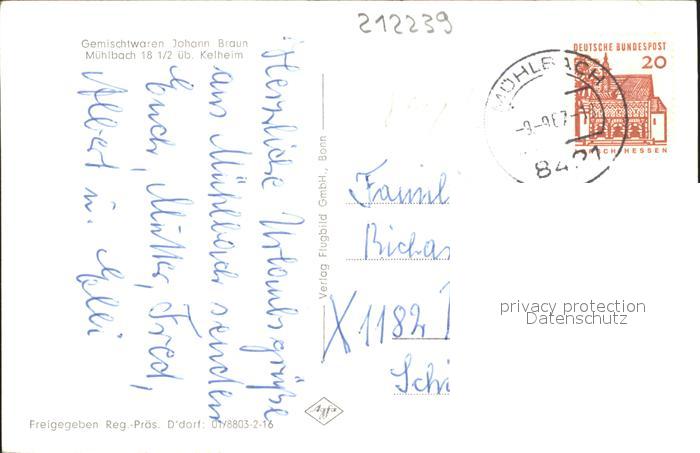 212239
Gemischtwaren Johann Braun
Mühlbach 18 1/2 üb. Kelheim
Herzliche Urlaubsgrüße
aus Mühlbach senden
Euch, Mutter, Fred,
Albert u.
Verlag Flugbild GmbH., Bonn
DEUTSCHE BUNDESPOST
20
HESSEN
MÜHLBACH
8421
Famil
Richar
X1182
Schi
privacy protection
Datenschutz
Agfa
Freigegeben Reg.-Präs. D'dorf: 01/8803-2-16